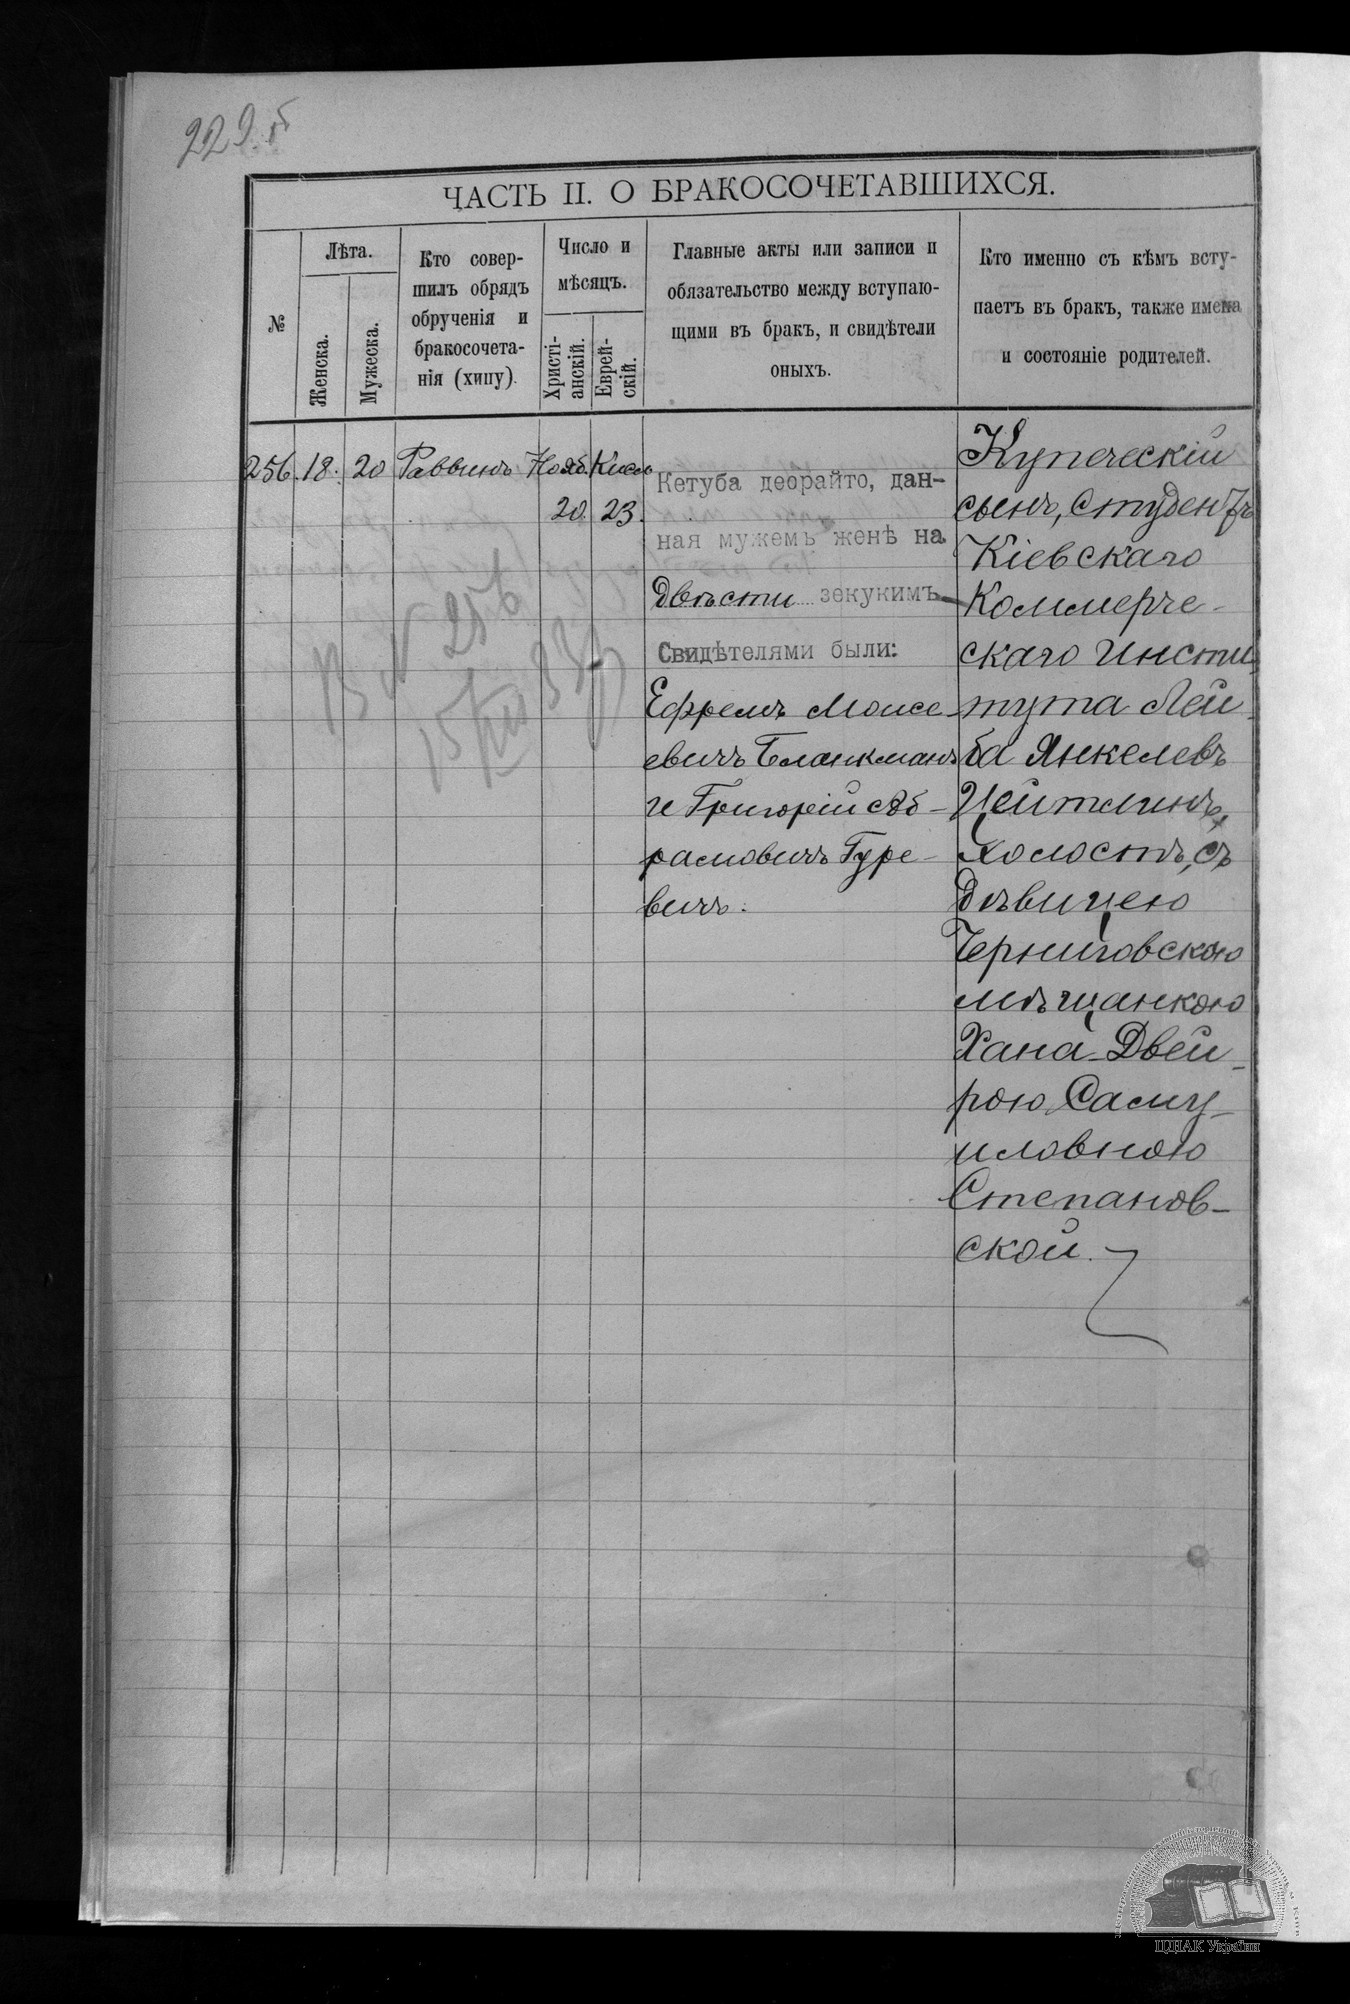 229.б
ЧАСТЬ II. О БРАКОСОЧЕТАВШИХСЯ.
№
Лѣта.
Женска.
Мужеска.
Кто совер-
шилъ обрядъ
обрученія и
бракосочета-
нія (хипу).
Число и
мѣсяцъ.
Христі-
анскій.
Еврей-
скій.
Главные акты или записи и
обязательство между вступаю-
щими въ бракъ, и свидѣтели
оныхъ.
Кто именно съ кѣмъ всту-
паетъ въ бракъ, также имена
и состояніе родителей.
256. 18. 20 Раввинъ Нояб. Кисл
20. 23.
Кетуба деорайто, дан-
ная мужемъ женѣ на
двѣсти зекукимъ
Свидѣтелями были:
Ефремъ Моисе-
евичъ Бланкманъ
и Григорій Аб-
рамовичъ Гуре-
вичъ.
Купеческій
сынъ, студентъ
Кіевскаго
Коммерче-
скаго Инсти-
тута Лей-
ба Янкелевъ
Цейтлинъ,
холостъ, съ
дѣвицею
Черниговскою
мѣщанкою
Хана-Двей-
рою Саму-
иловною
Степанов-
ской.
В № 256
15/VII 93
ЦДІАК України